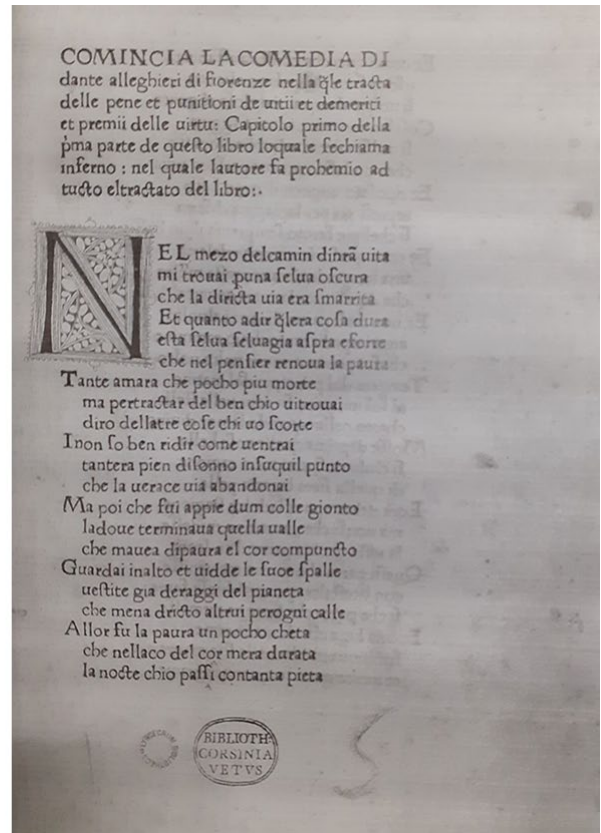 COMINCIA LA COMEDIA DI
dante alleghieri di fiorenze nella q̃le tracta
delle pene et punitioni de uitii et demeriti
et premii delle uirtu: Capitolo primo della
p̃ma parte de questo libro loquale sechiama
inferno : nel quale lautore fa prohemio ad
tucto eltractato del libro:·
NEL mezo delcamin dinr̃a uita
mi trouai ꝑuna selua oscura
che la diricta uia era smarrita
Et quanto adir q̃lera cosa dura
esta selua seluagia aspra eforte
che nel pensier renoua la paura
Tante amara che pocho piu morte
ma pertractar del ben chio uitrouai
diro dellatre cose chi uo scorte
I non so ben ridir come uentrai
tantera pien disonno insuquil punto
che la uerace uia abandonai
Ma poi che fui appie dum colle gionto
ladoue terminaua quella ualle
che mauea dipaura el cor compuncto
Guardai inalto et uidde le suoe spalle
uestite gia deraggi del pianeta
che mena dricto altrui perogni calle
Allor fu la paura un pocho cheta
che nellaco del cor mera durata
la nocte chio passi contanta pieta
BIBLIOTH
CORSINIA
VETVS